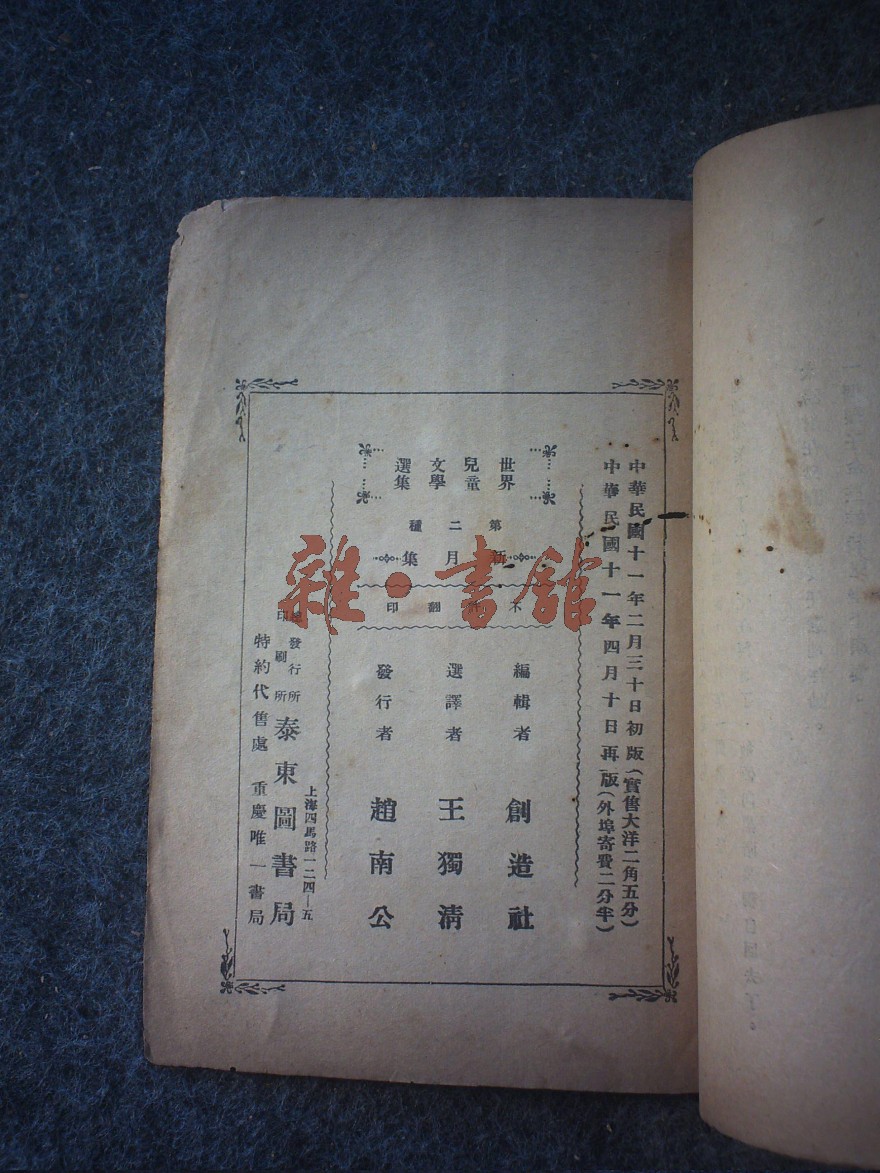 中華民國十一年二月三十日初版（實售大洋二角五分）
中華民國十一年四月十日再版（外埠寄費二分半）
世界兒童文學選集
第二種
新月集
不許翻印
編輯者 創造社
選譯者 王獨清
發行者 趙南公
上海四馬路一二四—五
總發行所
印刷所
泰東圖書局
特約代售處 重慶唯一書局
雜·書館